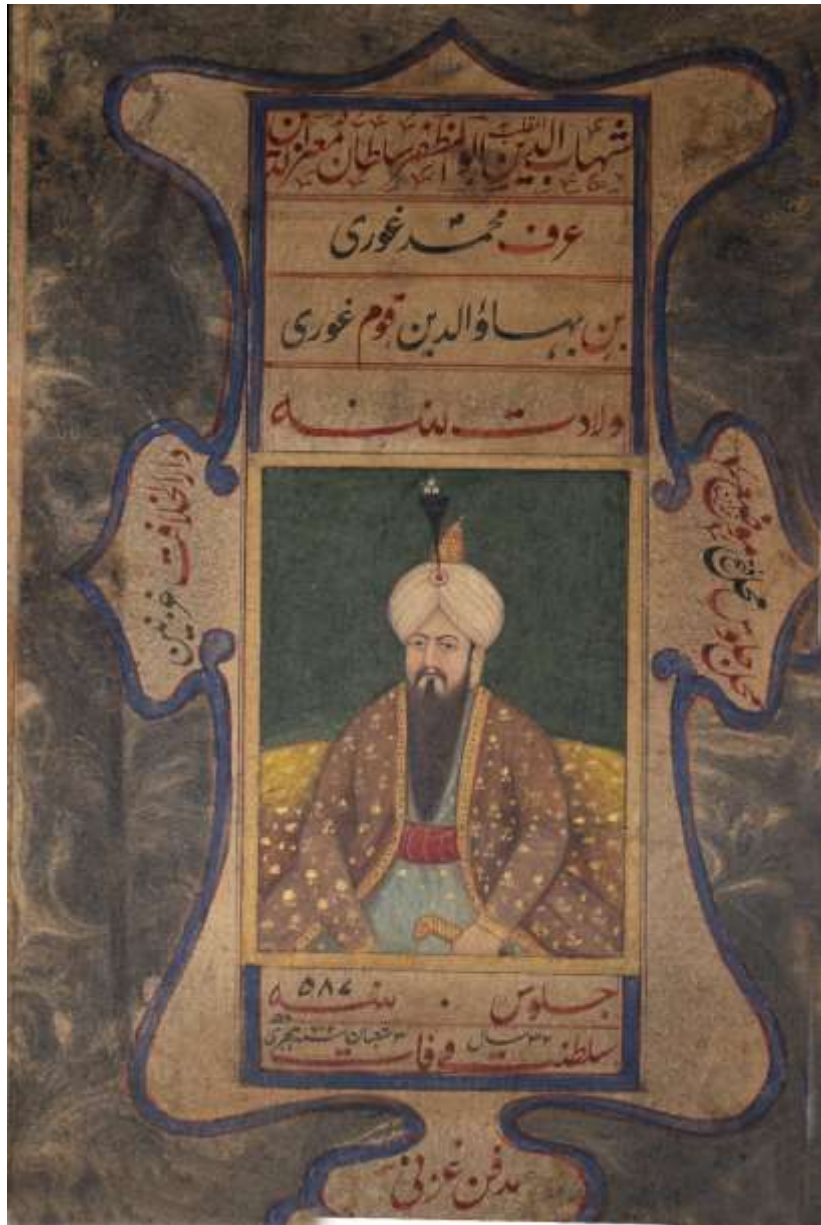 شهاب الدین ابو المظفر سلطان معز الدین
عرف محمد غوری
بن بهاؤ الدین قوم غوری
ولادت سنه
محل جلوس
دار الخلافت غزنین
جلوس سنه ۵۸۷
سلطنت ۳۲ سال وفات ۳ شعبان سنه هجری
مدفن غزنی